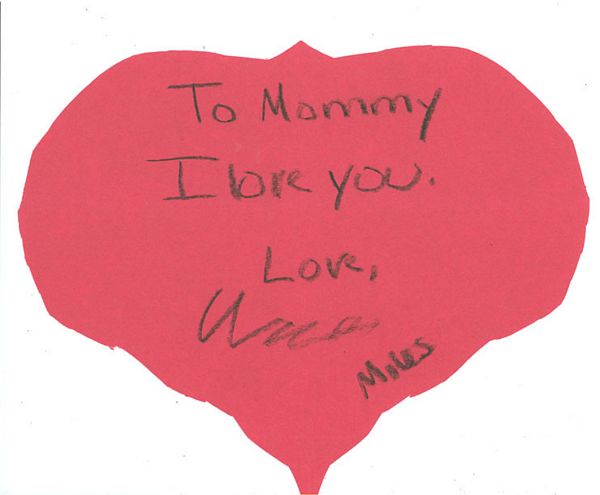 To Mommy
I love you.
Love,
Miles